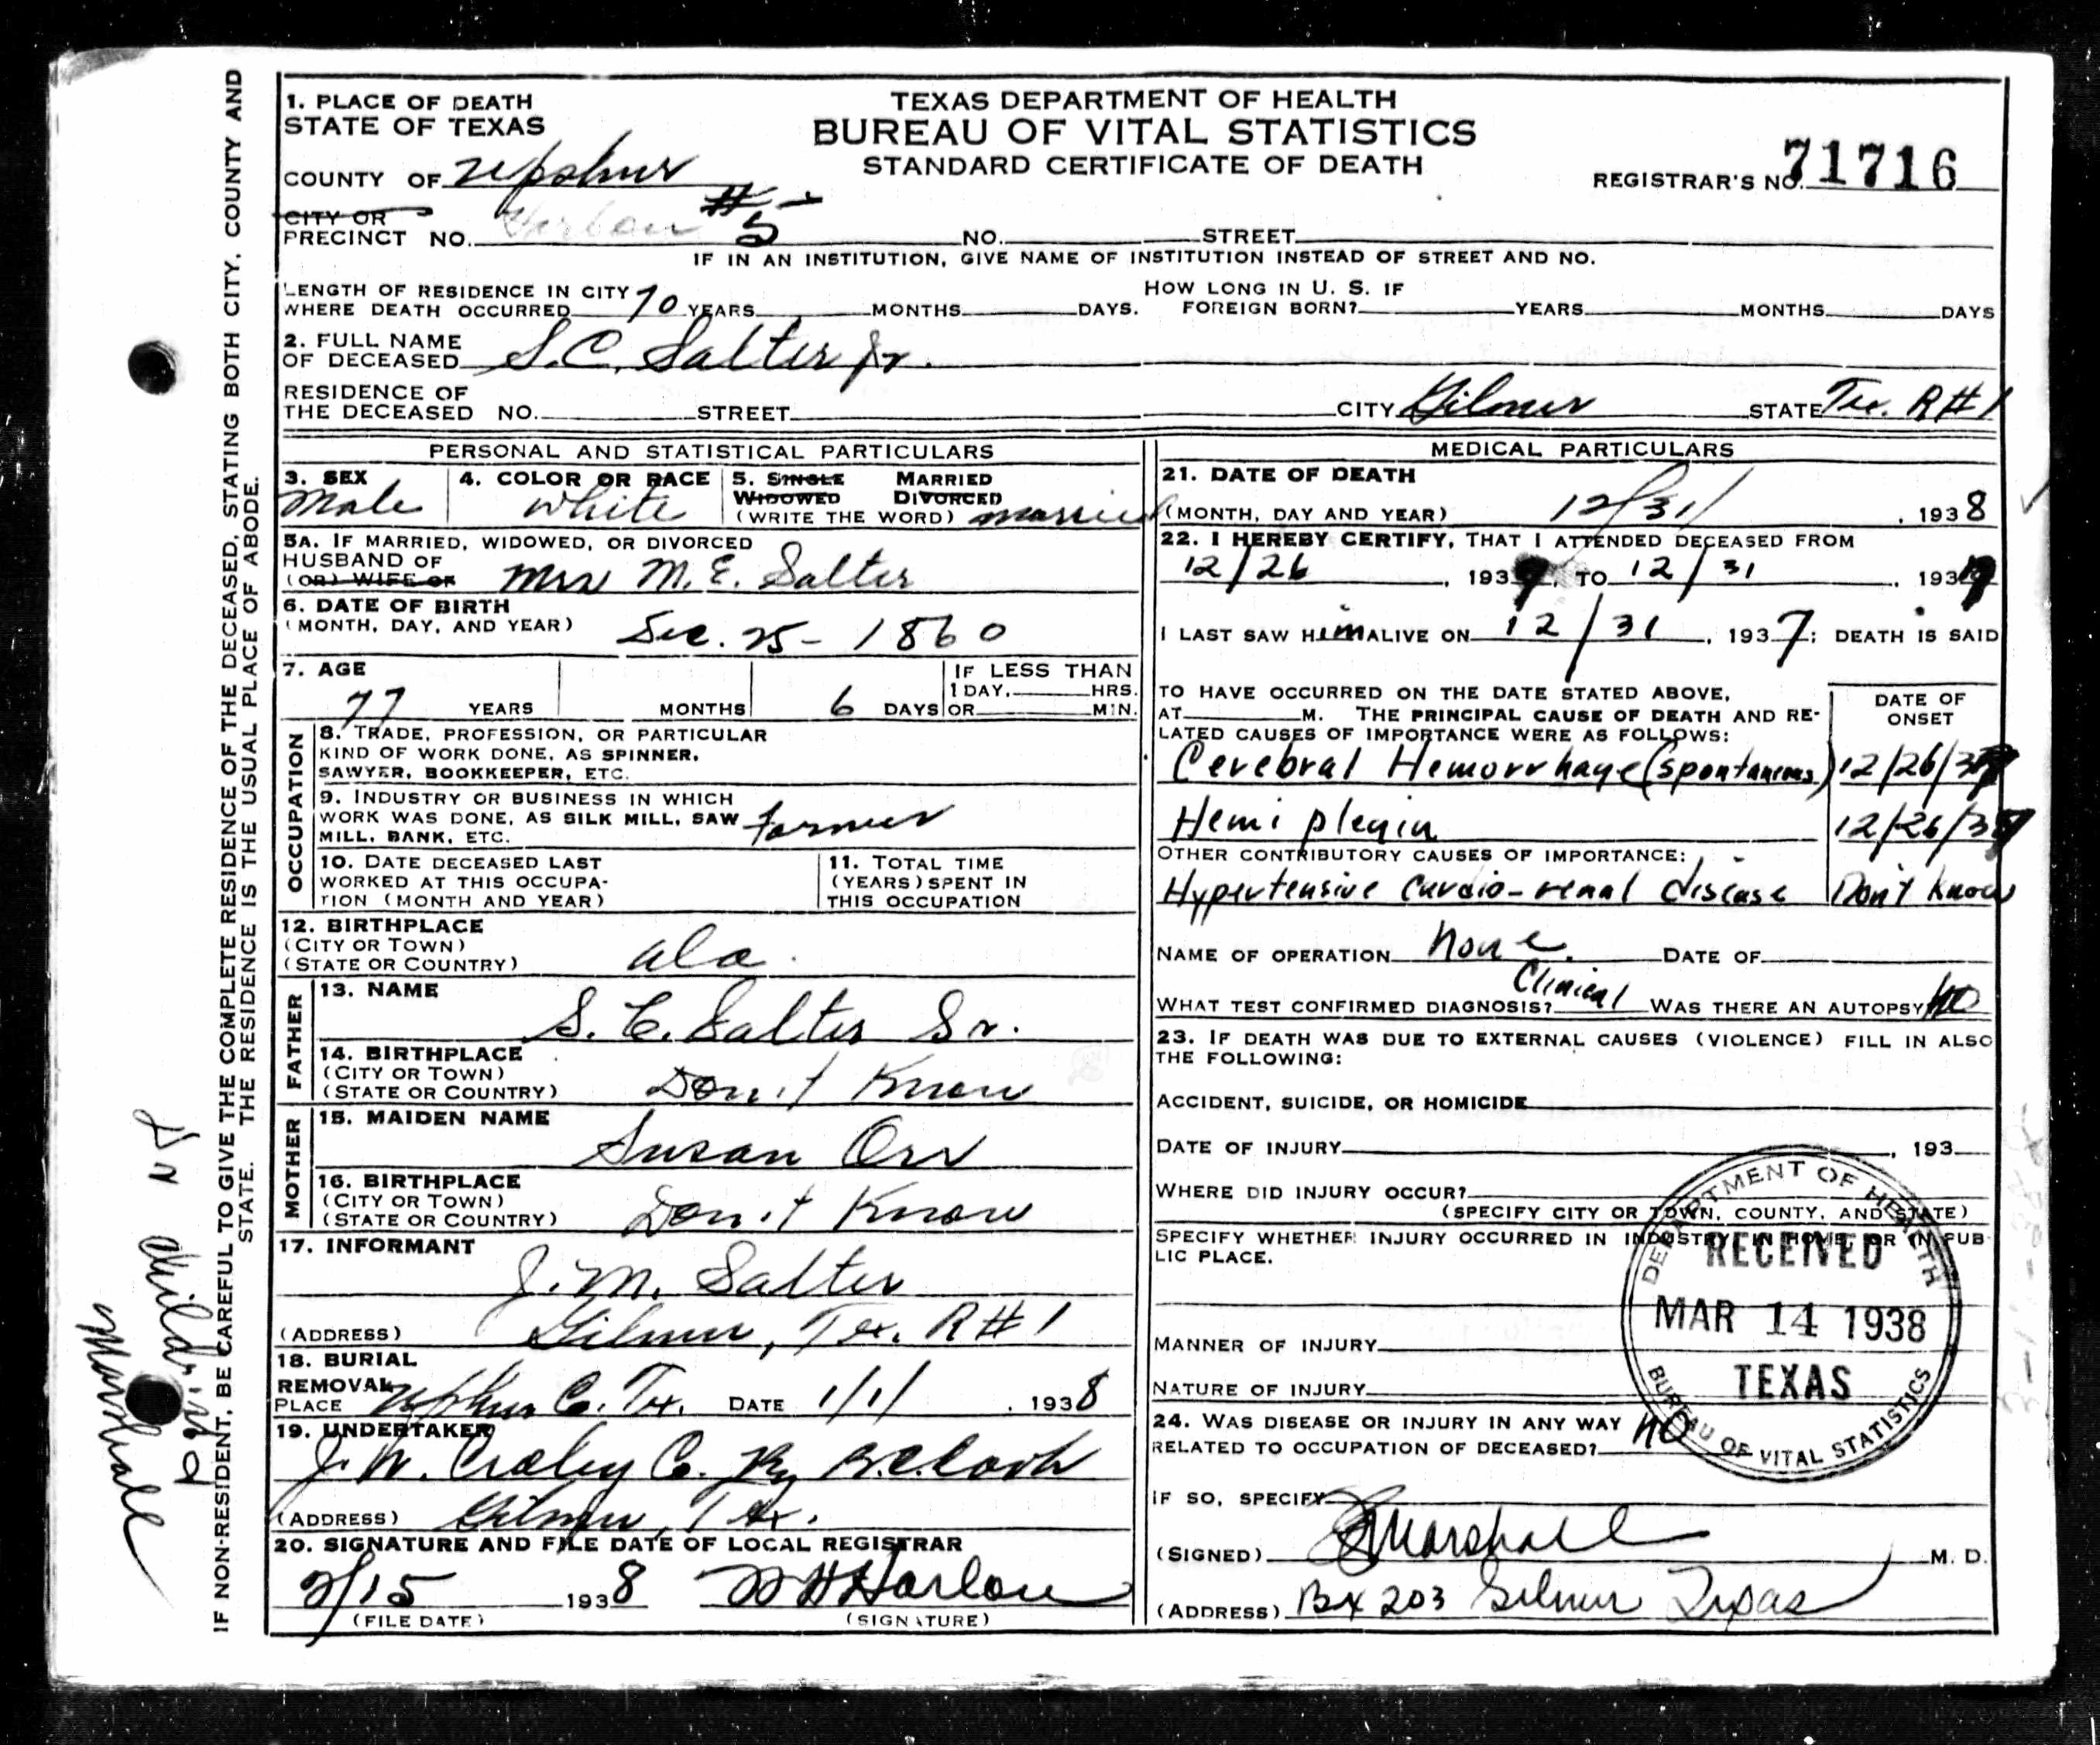 1. PLACE OF DEATH
STATE OF TEXAS
TEXAS DEPARTMENT OF HEALTH
BUREAU OF VITAL STATISTICS
STANDARD CERTIFICATE OF DEATH
COUNTY OF Upshur
REGISTRAR'S NO. 71716
CITY OR
PRECINCT NO. Harlow # 5 NO. STREET
IF IN AN INSTITUTION, GIVE NAME OF INSTITUTION INSTEAD OF STREET AND NO.
LENGTH OF RESIDENCE IN CITY
WHERE DEATH OCCURRED 70 YEARS MONTHS DAYS.
HOW LONG IN U. S. IF
FOREIGN BORN? YEARS MONTHS DAYS
2. FULL NAME
OF DECEASED S.C. Salter Jr.
RESIDENCE OF
THE DECEASED NO. STREET CITY Gilmer STATE Tex. R#1
PERSONAL AND STATISTICAL PARTICULARS
3. SEX
Male
4. COLOR OR RACE
White
5. SINGLE MARRIED
WIDOWED DIVORCED
(WRITE THE WORD) married
5A. IF MARRIED, WIDOWED, OR DIVORCED
HUSBAND OF
(OR) WIFE OF Mrs M.E. Salter
6. DATE OF BIRTH
(MONTH, DAY, AND YEAR) Dec. 25 - 1860
7. AGE
77 YEARS MONTHS 6 DAYS
IF LESS THAN
1 DAY, HRS.
OR MIN.
OCCUPATION
8. TRADE, PROFESSION, OR PARTICULAR
KIND OF WORK DONE, AS SPINNER,
SAWYER, BOOKKEEPER, ETC.
9. INDUSTRY OR BUSINESS IN WHICH
WORK WAS DONE, AS SILK MILL, SAW
MILL, BANK, ETC. farmer
10. DATE DECEASED LAST
WORKED AT THIS OCCUPA-
TION (MONTH AND YEAR)
11. TOTAL TIME
(YEARS) SPENT IN
THIS OCCUPATION
12. BIRTHPLACE
(CITY OR TOWN)
(STATE OR COUNTRY) ala.
FATHER
13. NAME
S. C. Salter Sr.
14. BIRTHPLACE
(CITY OR TOWN)
(STATE OR COUNTRY) Don't Know
MOTHER
15. MAIDEN NAME
Susan Orr
16. BIRTHPLACE
(CITY OR TOWN)
(STATE OR COUNTRY) Don't Know
17. INFORMANT
J. M. Salter
(ADDRESS) Gilmer, Tex. R#1
18. BURIAL
REMOVAL
PLACE Upshur Co. Tex. DATE 1/1/, 1938
19. UNDERTAKER
J. W. Croley Co. By
(ADDRESS) Gilmer, Tex.
20. SIGNATURE AND FILE DATE OF LOCAL REGISTRAR
2/15 1938 Harlow
(FILE DATE) (SIGNATURE)
MEDICAL PARTICULARS
21. DATE OF DEATH
(MONTH, DAY AND YEAR) 12/31/, 1938
22. I HEREBY CERTIFY, THAT I ATTENDED DECEASED FROM
12/26, 1937, TO 12/31, 1937
I LAST SAW HIM ALIVE ON 12/31, 1937; DEATH IS SAID
TO HAVE OCCURRED ON THE DATE STATED ABOVE,
AT M. THE PRINCIPAL CAUSE OF DEATH AND RE-
LATED CAUSES OF IMPORTANCE WERE AS FOLLOWS:
DATE OF
ONSET
Cerebral Hemorrhage (spontaneous) 12/26/37
Hemi plegia 12/26/37
OTHER CONTRIBUTORY CAUSES OF IMPORTANCE:
Hypertensive Cardio-renal disease Don't know
NAME OF OPERATION None. DATE OF
WHAT TEST CONFIRMED DIAGNOSIS? Clinical WAS THERE AN AUTOPSY No
23. IF DEATH WAS DUE TO EXTERNAL CAUSES (VIOLENCE) FILL IN ALSO
THE FOLLOWING:
ACCIDENT, SUICIDE, OR HOMICIDE
DATE OF INJURY , 193
WHERE DID INJURY OCCUR?
(SPECIFY CITY OR TOWN, COUNTY, AND STATE)
SPECIFY WHETHER INJURY OCCURRED IN INDUSTRY, IN HOME, OR IN PUB-
LIC PLACE.
MANNER OF INJURY
NATURE OF INJURY
24. WAS DISEASE OR INJURY IN ANY WAY
RELATED TO OCCUPATION OF DECEASED? No
IF SO, SPECIFY
(SIGNED) Marshall M. D.
(ADDRESS) Bx 203 Gilmer Texas
DEPARTMENT OF HEALTH
RECEIVED
MAR 14 1938
TEXAS
BUREAU OF VITAL STATISTICS
IF NON-RESIDENT, BE CAREFUL TO GIVE THE COMPLETE RESIDENCE OF THE DECEASED, STATING BOTH CITY, COUNTY AND
STATE. THE RESIDENCE IS THE USUAL PLACE OF ABODE.
Dr
Marshall